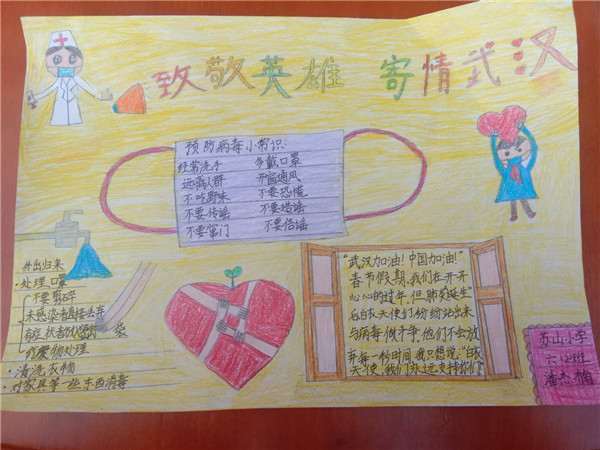 致敬英雄 寄情武汉
预防病毒小常识:
经常洗手 多戴口罩
远离人群 开窗通风
不吃野味 不要恐慌
不要传谣 不要造谣
不要窜门 不要信谣
外出归来
·处理口罩
不要剪碎
未感染者直接丢弃
袋
·清洗衣物
·对家具等一些东西消毒
“武汉加油!中国加油!”
春节假期,我们在开开
心心的过年,但肺炎诞生
后白衣天使们纷纷站出来
与病毒做斗争。他们不会放
弃每一秒时间,我只想说,“白衣
天使,我们永远支持你们”
苏山小学
六(2)班
潘杰楠